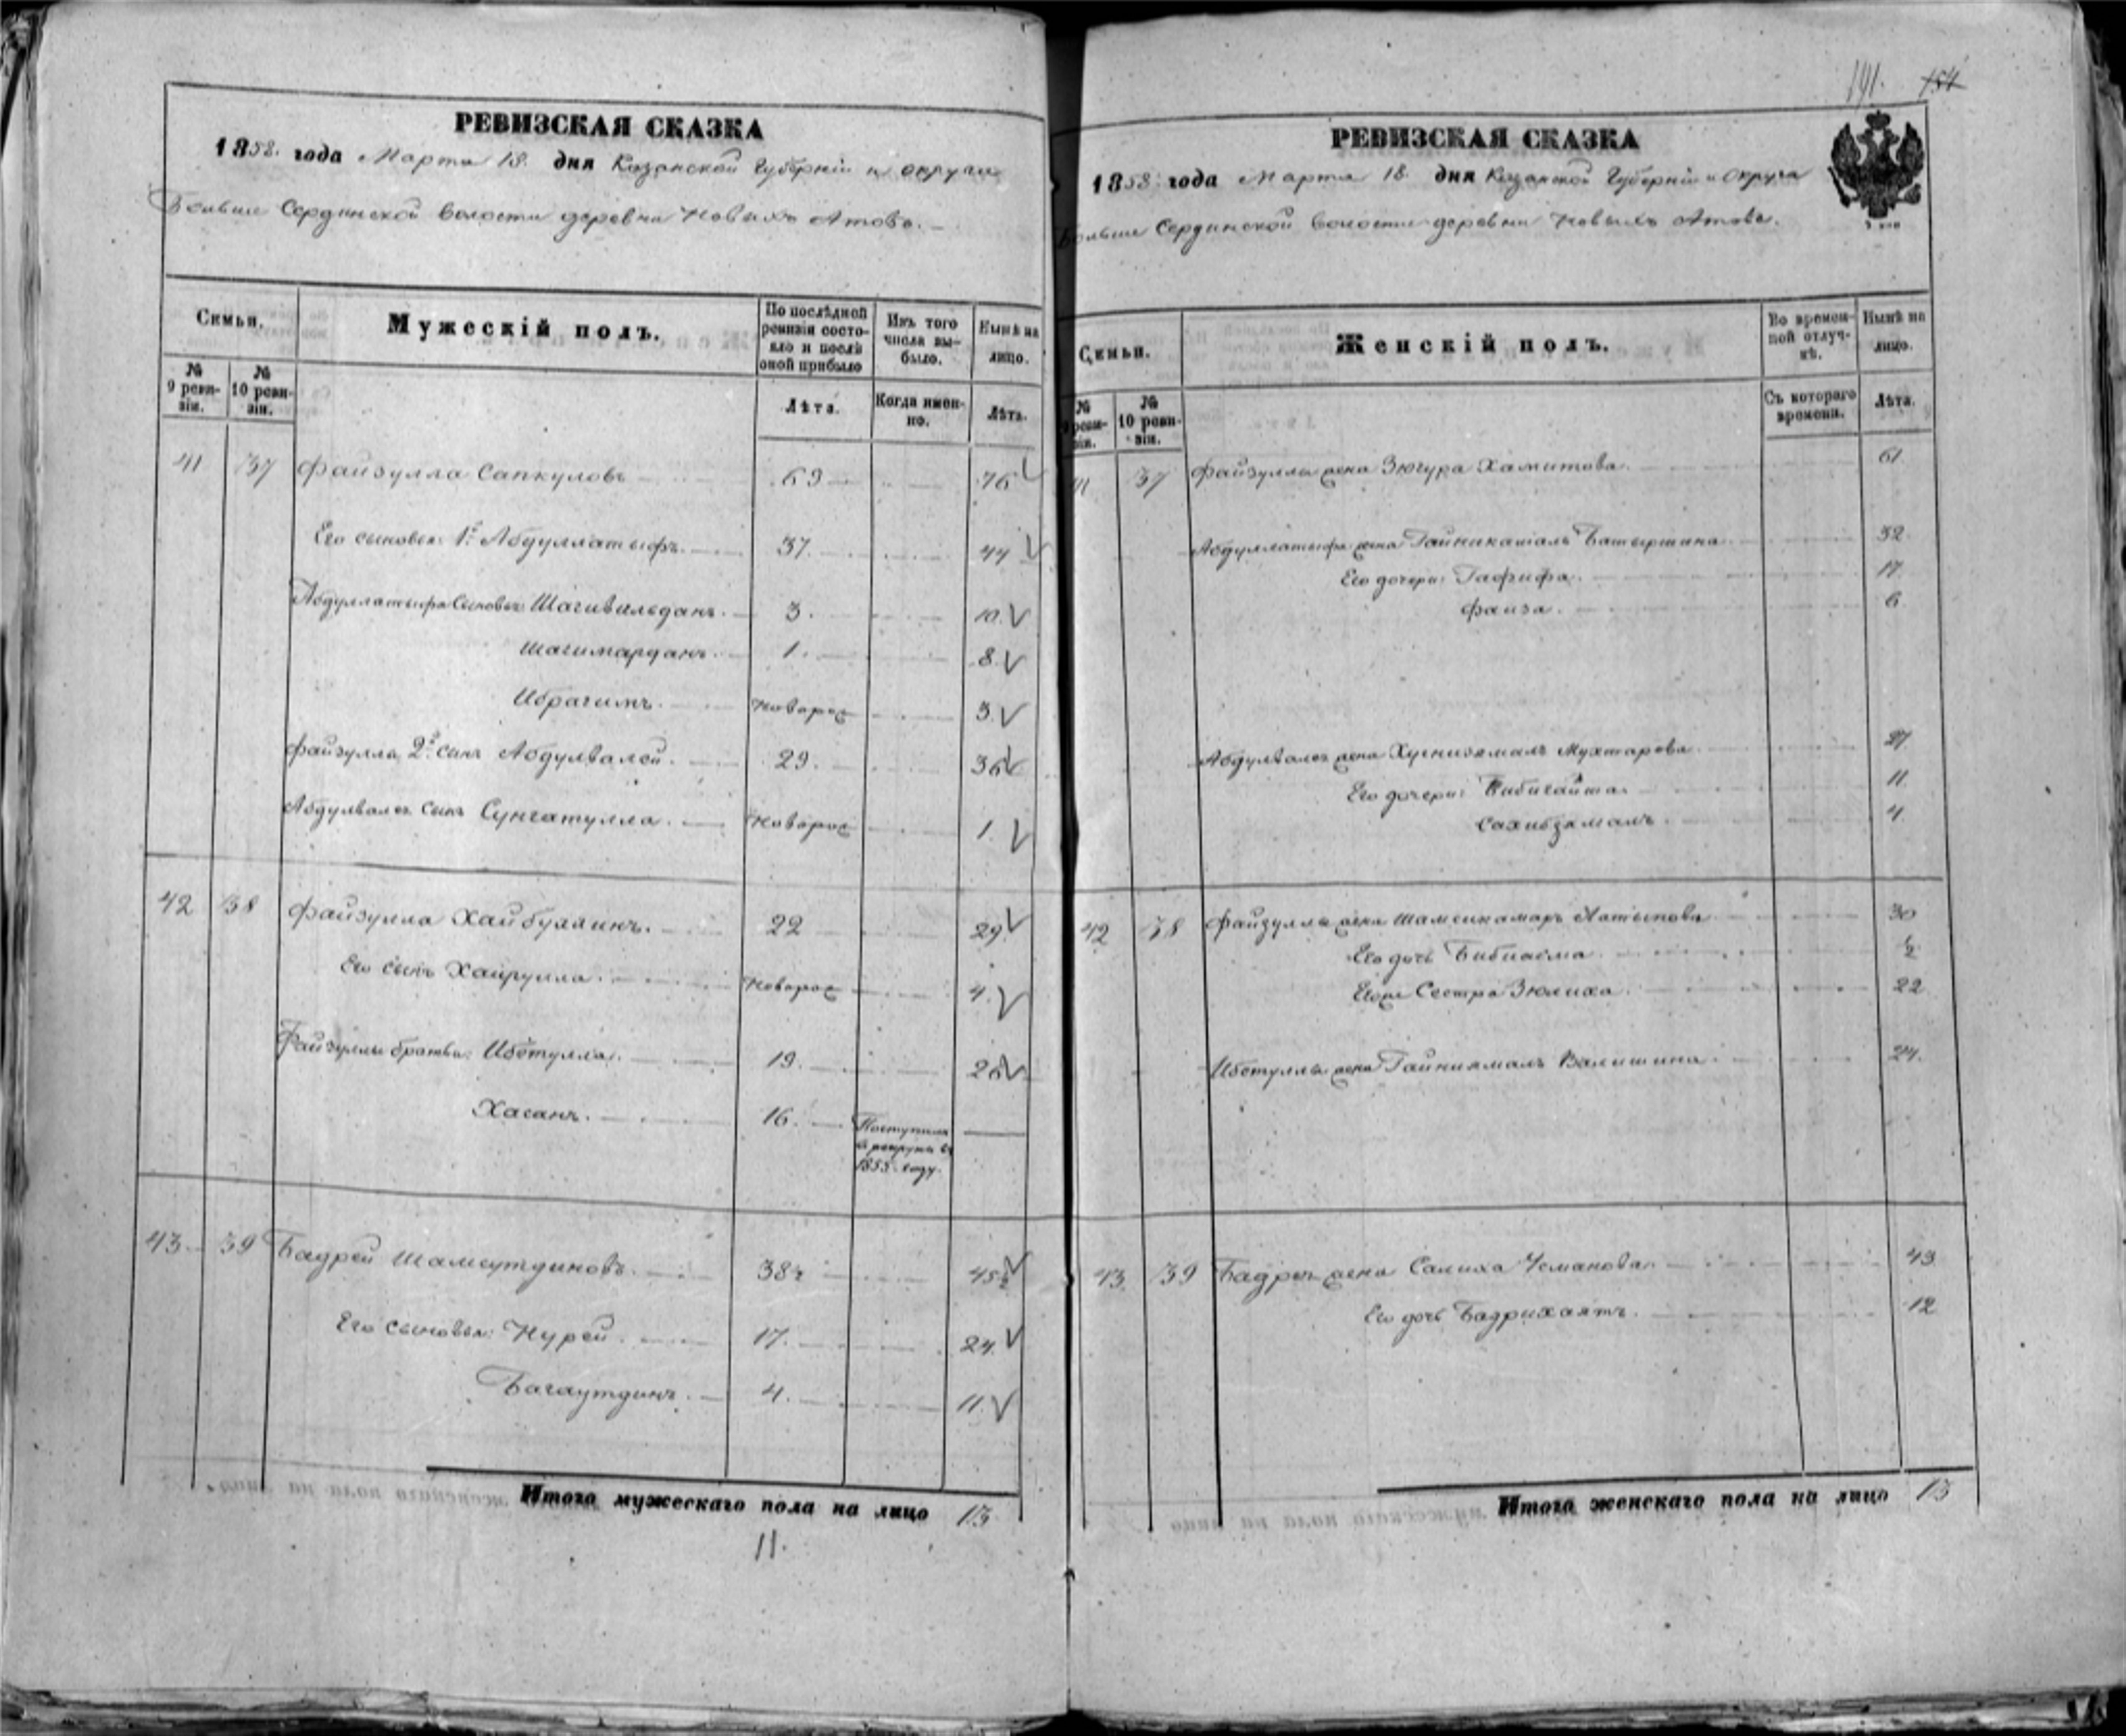 191. 154
РЕВИЗСКАЯ СКАЗКА
1858. года Марта 18. дня Казанской Губернiи и округа
Больше Сердинской волости деревни Новыхъ Атовъ.
Семьи.
Мужескiй полъ.
По послѣдней ревизiи состояло и послѣ оной прибыло
Изъ того числа выбыло.
Нынѣ на лицо.
№ 9 ревизiи.
№ 10 ревизiи.
Лѣта.
Когда именно.
Лѣта.
41 37 Файзулла Сапкуловъ 69 76
Его сыновья: 1й Абдуллатыфъ. 37. 44
Абдуллатыфа сыновья: Шагивальданъ. 3. 10.
Шагимарданъ. 1. 8.
Ибрагимъ. новорож 3.
Файзуллы 2й сынъ Абдулвалей. 29. 36
Абдулвалея сынъ Сунгатулла. новорож 1.
42 38 Файзулла Хайбуллинъ. 22 29.
Его сынъ Хайрулла. новорож 4.
Файзуллы братья: Ибетулла. 19. 26
Хасанъ. 16. Поступилъ в рекруты въ 1855 году.
43 39 Бадрей Шамсутдиновъ. 38½ 45½
Его сыновья: Нурей. 17. 24.
Багаутдинъ. 4. 11.
Итого мужескаго пола на лицо 13
11.
РЕВИЗСКАЯ СКАЗКА
1858. года Марта 18. дня Казанской Губернiи и Округа
Больше Сердинской волости деревни Новыхъ Атовъ.
Семьи.
Женскiй полъ.
Во временной отлучкѣ.
Нынѣ на лицо.
№ 9 ревизiи.
№ 10 ревизiи.
Съ котораго времени.
Лѣта.
41 37 Файзуллы жена Зюгура Хамитова. 61
Абдуллатыфа жена Гайникамалъ Батыршина 32
Его дочери: Гафифа. 17.
Фаиза. 6
Абдулвалея жена Хуснизямалъ Мухтарова 27
Его дочери: Бибигайша. 11.
Сахибзямалъ. 4.
42 38 Файзуллы жена Шамсикамаръ Латыпова 30
Его дочь Бибиасма. ½
Его же Сестра Зюлиха. 22
Ибетуллы жена Гайниямалъ Валишина. 24.
43 39 Бадрея жена Салиха Усманова. 43
Его дочь Бадрихаятъ. 12
Итого женскаго пола на лицо 13